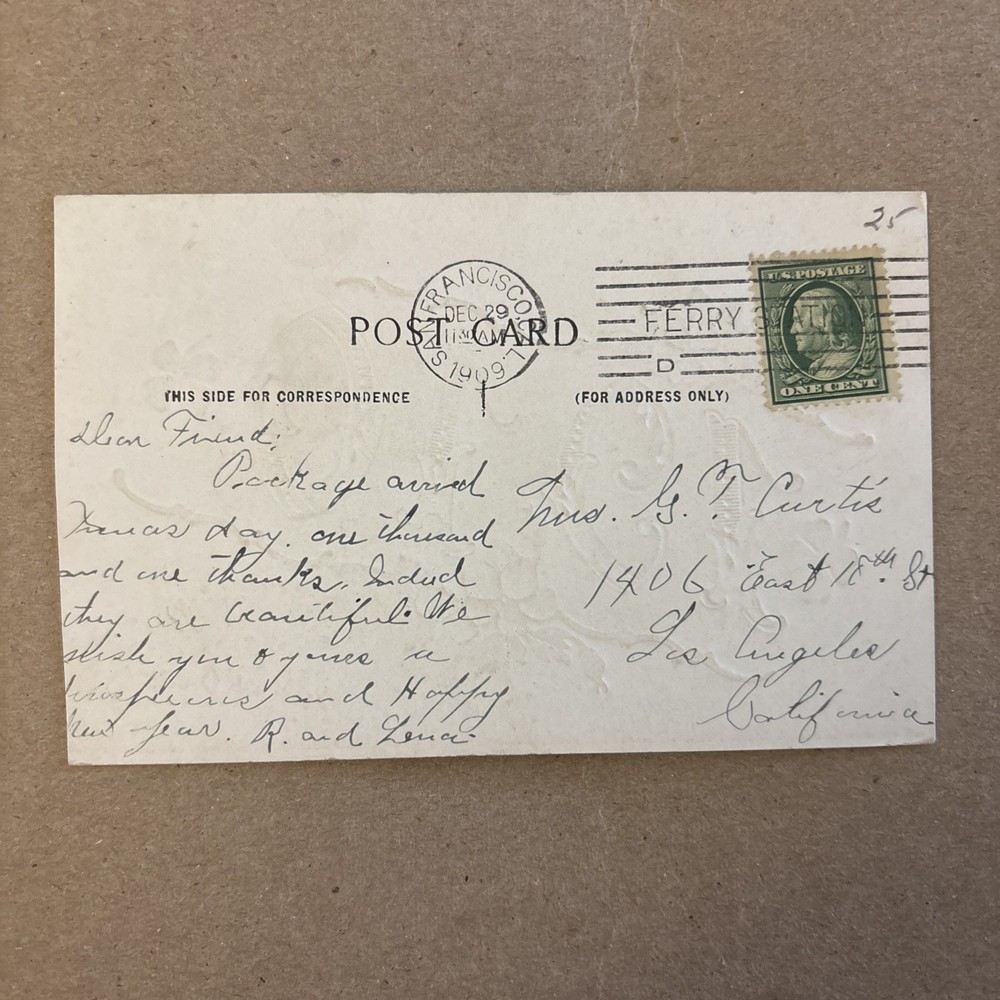 25
SAN FRANCISCO, CAL.
DEC 29
11 30 AM
1909
FERRY STATION
D
U.S. POSTAGE
ONE CENT
POST CARD
THIS SIDE FOR CORRESPONDENCE
(FOR ADDRESS ONLY)
Dear Friend:
Package arrived
Xmas day. one thousand
and one thanks. Indeed
they are beautiful. We
wish you & yours a
prosperous and Happy
New Year. R. and Lena.
Mrs. G. T. Curtis
1406 East 18th St
Los Angeles
California